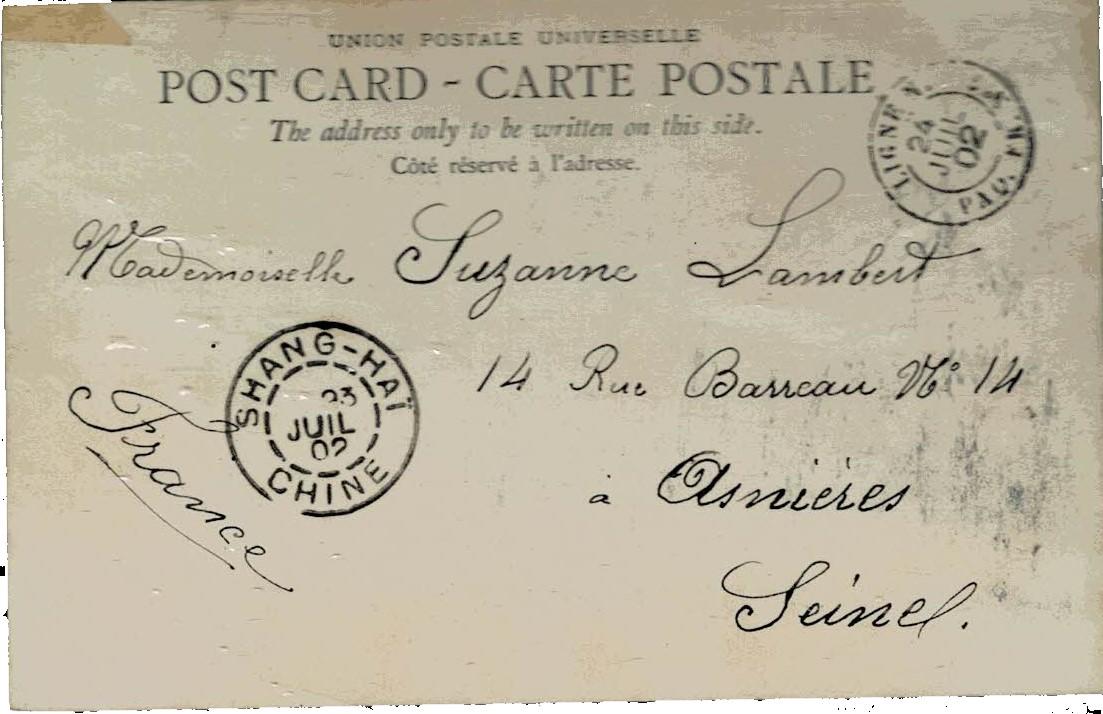 UNION POSTALE UNIVERSELLE
POST CARD - CARTE POSTALE
The address only to be written on this side.
Côté réservé à l'adresse.
LIGNE N.
PAQ. FR.
24
JUIL
02
Mademoiselle Suzanne Lambert
14 Rue Barreau Nº 14
à Asnières
Seine.
France
SHANG-HAÏ
23
JUIL
02
CHINE